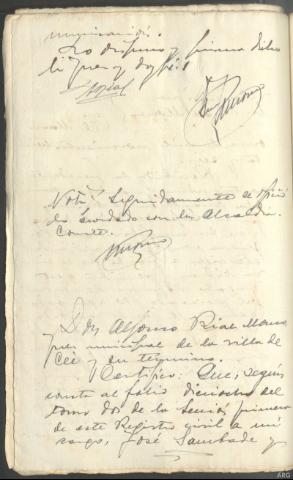 municación.
Lo dispuso y firma dicho
Sr Juez y doy fé.
Rial
Not.ª Seguidamente se ofició
lo acordado con la Alcaldía.
Conste.
D. Alfonso Rial Mouzo
juez municipal de la villa de
Cée y su término.
Certifico: Que, según
consta al folio dieciocho del
tomo dos de la Sección primera
de este Registro civil a mi
cargo, José Sambade y
ARG